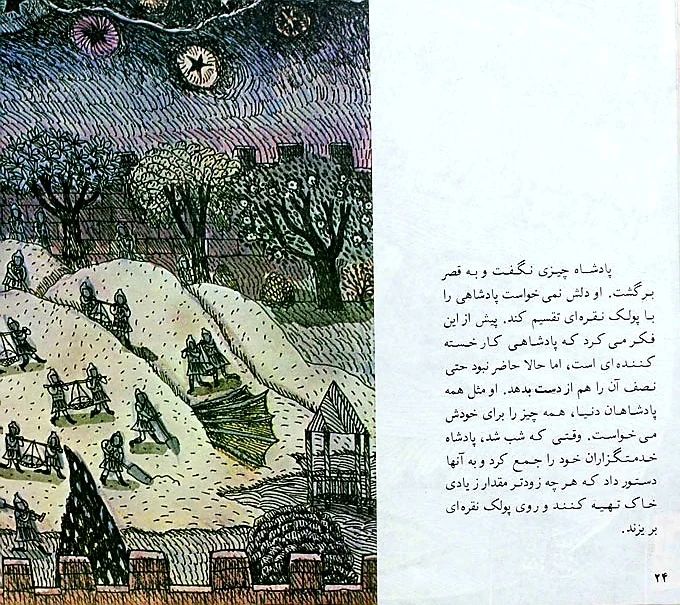 پادشاه چیزی نگفت و به قصر
برگشت. او دلش نمی خواست پادشاهی را
با پولک نقره ای تقسیم کند. پیش از این
فکر می کرد که پادشاهی کار خسته
کننده ای است، اما حالا حاضر نبود حتی
نصف آن را هم از دست بدهد. او مثل همه
پادشاهان دنیا، همه چیز را برای خودش
می خواست. وقتی که شب شد، پادشاه
خدمتگزاران خود را جمع کرد و به آنها
دستور داد که هر چه زودتر مقدار زیادی
خاک تهیه کنند و روی پولک نقره ای
بریزند.
۲۴